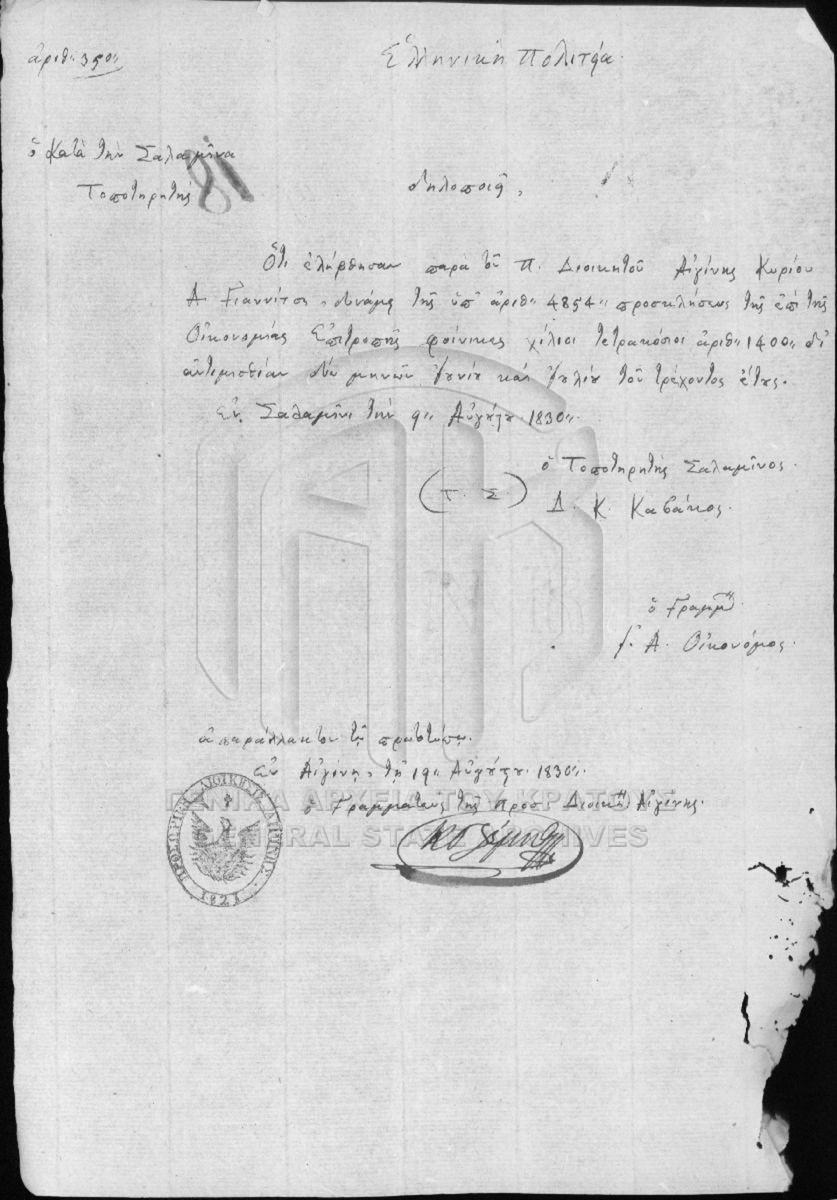 ἀριθ: 350:
Ἑλληνικὴ Πολιτεία.
ὁ κατὰ τὴν Σαλαμῖνα
Τοποτηρητὴς
81
δηλοποιεῖ,
Ὅτι ἐλήφθησαν παρὰ τοῦ Π. Διοικητοῦ Αἰγίνης Κυρίου
Α. Γιαννίτση, δυνάμει τῆς ὑπ' ἀριθ: 4854: προσκλήσεως τῆς ἐπὶ τῆς
Οἰκονομίας Ἐπιτροπῆς φοίνικες χίλιοι τετρακόσιοι ἀριθ: 1400: δι'
ἀντιμισθίαν τῶν μηνῶν Ἰουνίου καὶ Ἰουλίου τοῦ τρέχοντος ἔτους.
Ἐν Σαλαμῖνι τὴν 9: Αὐγούστου 1830:
ὁ Τοποτηρητὴς Σαλαμῖνος.
(Τ. Σ.)
Δ. Κ. Καβάκος.
ὁ Γραμμ:
Α. Οἰκονόμος.
ἀπαράλλακτον τῷ πρωτοτύπῳ.
ἐν Αἰγίνῃ, τῇ 19: Αὐγούστου 1830:
ὁ Γραμματεὺς τῆς Προσ. Διοικη: Αἰγίνης.
ΓΕΝΙΚΑ ΑΡΧΕΙΑ ΤΟΥ ΚΡΑΤΟΥΣ
GENERAL STATE ARCHIVES
1821